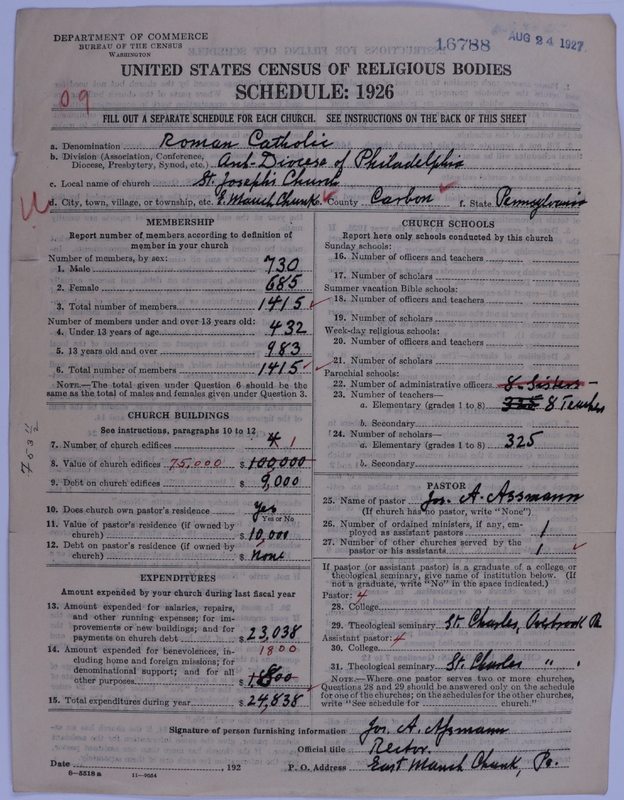 DEPARTMENT OF COMMERCE
BUREAU OF THE CENSUS
WASHINGTON
16788 AUG 24 1927
UNITED STATES CENSUS OF RELIGIOUS BODIES
SCHEDULE: 1926
09
FILL OUT A SEPARATE SCHEDULE FOR EACH CHURCH. SEE INSTRUCTIONS ON THE BACK OF THIS SHEET
a. Denomination Roman Catholic
b. Division (Association, Conference,
Diocese, Presbytery, Synod, etc.) Arch-Diocese of Philadelphia
c. Local name of church St. Joseph's Church
d. City, town, village, or township, etc. E. Mauch Chunk County Carbon f. State Pennsylvania
MEMBERSHIP
Report number of members according to definition of
member in your church
Number of members, by sex:
1. Male 730
2. Female 685
3. Total number of members 1415
Number of members under and over 13 years old:
4. Under 13 years of age 432
5. 13 years old and over 983
6. Total number of members 1415
NOTE.—The total given under Question 6 should be the
same as the total of males and females given under Question 3.
CHURCH BUILDINGS
See instructions, paragraphs 10 to 12
7. Number of church edifices 4 1
8. Value of church edifices 75,000 $ 100,000
9. Debt on church edifices $ 9,000
10. Does church own pastor's residence? Yes
Yes or No
11. Value of pastor's residence (if owned by
church) $ 10,000
12. Debt on pastor's residence (if owned by
church) $ None
EXPENDITURES
Amount expended by your church during last fiscal year
13. Amount expended for salaries, repairs,
and other running expenses; for im-
provements or new buildings; and for
payments on church debt $ 23,038
14. Amount expended for benevolences, in- 1800
cluding home and foreign missions; for
denominational support; and for all
other purposes $ 1800
15. Total expenditures during year $ 24,838
CHURCH SCHOOLS
Report here only schools conducted by this church
Sunday schools:
16. Number of officers and teachers
17. Number of scholars
Summer vacation Bible schools:
18. Number of officers and teachers
19. Number of scholars
Week-day religious schools:
20. Number of officers and teachers
21. Number of scholars
Parochial schools:
22. Number of administrative officers 8 Sisters
23. Number of teachers—
a. Elementary (grades 1 to 8) 325 8 Teachers
b. Secondary
24. Number of scholars—
a. Elementary (grades 1 to 8) 325
b. Secondary
PASTOR
25. Name of pastor Jos. A. Assmann
(If church has no pastor, write "None")
26. Number of ordained ministers, if any, em-
ployed as assistant pastors 1
27. Number of other churches served by the
pastor or his assistants 1
If pastor (or assistant pastor) is a graduate of a college or
theological seminary, give name of institution below. (If
not a graduate, write "No" in the space indicated.)
Pastor: 4
28. College
29. Theological seminary St. Charles, Overbrook Pa
Assistant pastor: 4
30. College
31. Theological seminary St. Charles " "
NOTE.—Where one pastor serves two or more churches,
Questions 28 and 29 should be answered only on the schedule
for one of the churches; on the schedules for the other churches,
write "See schedule for church."
Signature of person furnishing information Jos. A. Assmann
Official title Rector.
Date , 192 P. O. Address East Mauch Chunk, Pa.
8—5518 a 11—9054